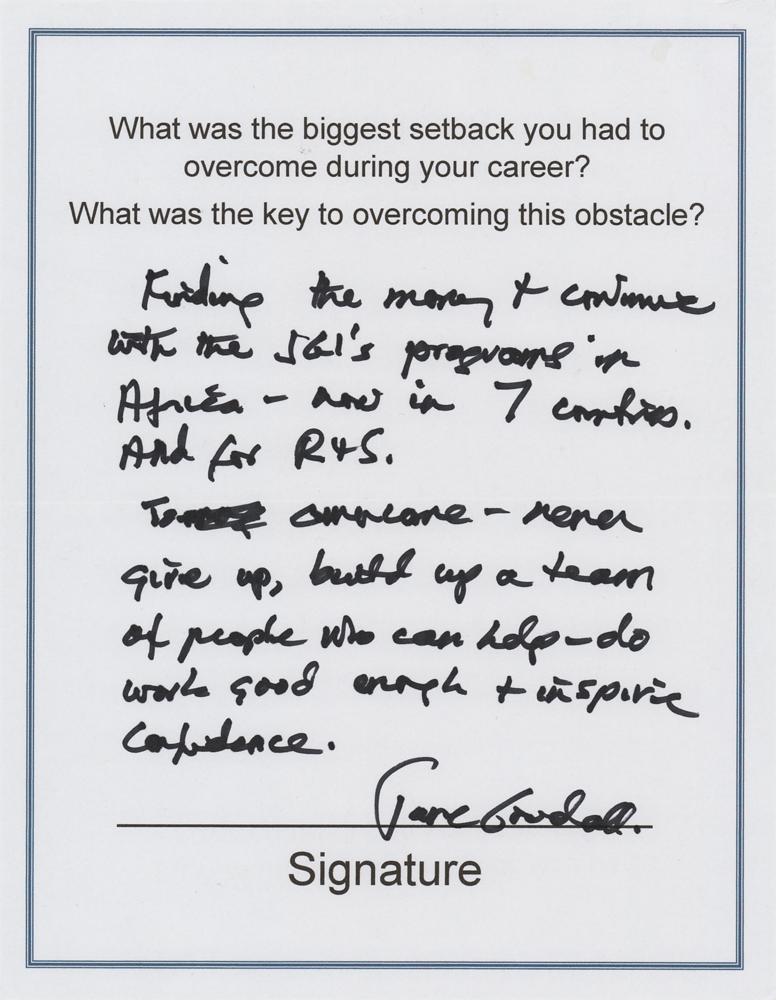 What was the biggest setback you had to
overcome during your career?
What was the key to overcoming this obstacle?
Finding the money + continue
with the JGI's programs in
Africa - now in 7 countries.
And for R+S.
To overcome - never
give up, build up a team
of people who can help - do
work good enough + inspire
Confidence.
Jane Goodall.
Signature